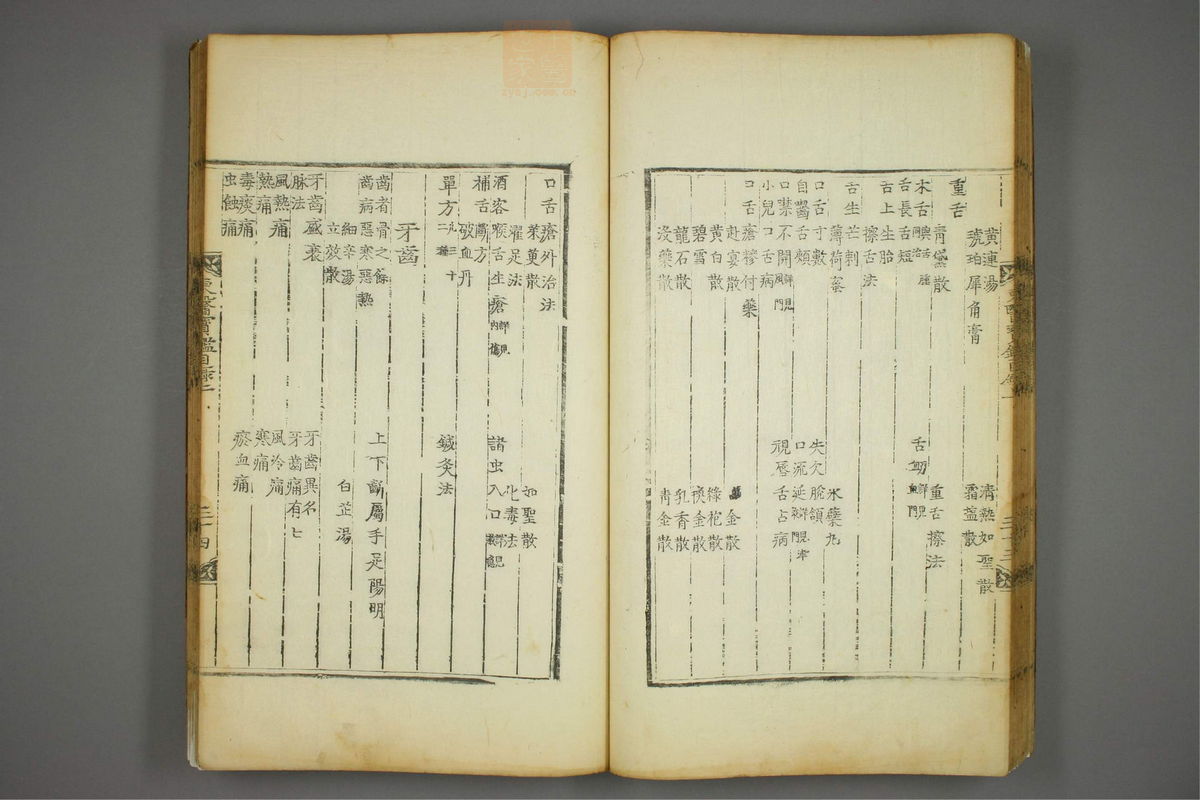 重舌
黃連湯
清熱如聖散
琥珀犀角膏
霜鹽散
青黛散
重舌擦法
木舌
舌腫
舌衄
舌長舌短
舌上生胎
擦舌法
舌生芒刺
薄荷蜜
口舌寸數
氷蘗丸
自嚙舌頰
失欠脫頷
口噤不開 詳見風門
口流涎
小兒口舌病
視唇舌占病
口舌瘡糝付藥
赴宴散
金散
黃白散
綠袍散
碧雪
換金散
龍石散
乳香散
淺藥散
青金散
口舌瘡外治法
茱萸散
如聖散
濯足法
化毒法
酒客喉舌生瘡 詳見內傷
諸虫入口
補舌斷方
破血丹
單方
鍼灸法
牙齒
齒者骨之餘
上下齗屬手足陽明
齒病惡寒惡熱
細辛湯
白芷湯
立效散
牙齒盛衰
牙齒異名
脉法
牙齒痛有七
風熱痛
風冷痛
熱痛
寒痛
毒痰痛
瘀血痛
虫蝕痛
東醫寶鑑目錄二
二十四